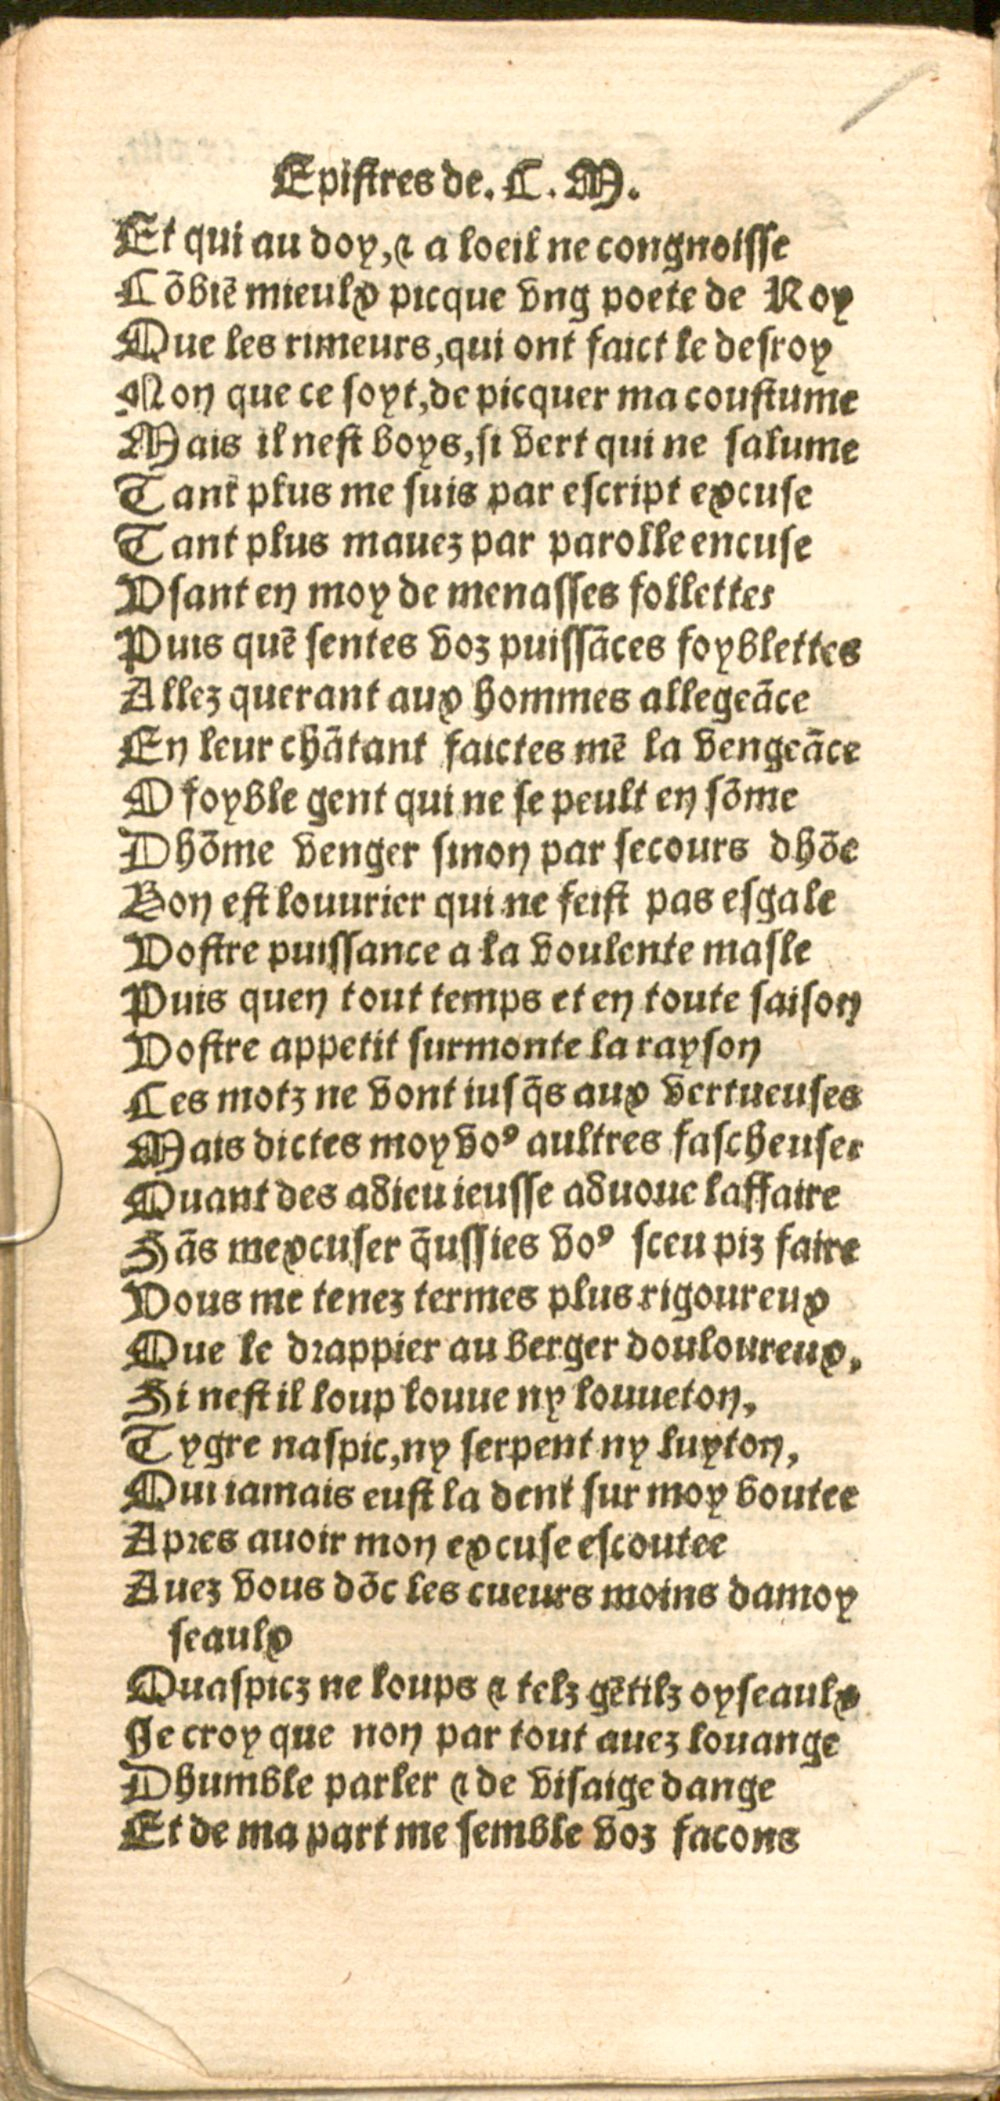 Epistres de. C. M.
Et qui au doy, ⁊ a loeil ne congnoisse
Cõbiẽ mieulx picque vng poete de Roy
Que les rimeurs, qui ont faict le desroy
Non que ce soyt, de picquer ma coustume
Mais il nest boys, si vert qui ne salume
Tant plus me suis par escript excuse
Tant plus mauez par parolle encuse
Vsant en moy de menasses follettes
Puis quẽ sentes voz puissãces foyblettes
Allez querant aux hommes allegeãce
En leur chãtant faictes mẽ la vengeãce
O foyble gent qui ne se peult en sõme
Dhõme venger sinon par secours dhõe
Bon est louurier qui ne feist pas esgale
Vostre puissance a la voulente masle
Puis quen tout temps et en toute saison
Vostre appetit surmonte la rayson
Ces motz ne vont iusq̃s aux vertueuses
Mais dictes moy voꝰ aultres fascheuses
Quant des adieu ieusse aduoue laffaire
Sãs mexcuser q̃ussies voꝰ sceu piz faire
Vous me tenez termes plus rigoureux
Que le drappier au berger douloureux,
Si nest il loup louue ny louueton,
Tygre naspic, ny serpent ny luyton,
Qui iamais eust la dent sur moy boutee
Apres auoir mon excuse escoutee
Auez vous dõc les cueurs moins damoy
seaulx
Quaspicz ne loups ⁊ telz gẽtilz oyseaulx
Je croy que non par tout auez louange
Dhumble parler ⁊ de visaige dange
Et de ma part me semble voz facons